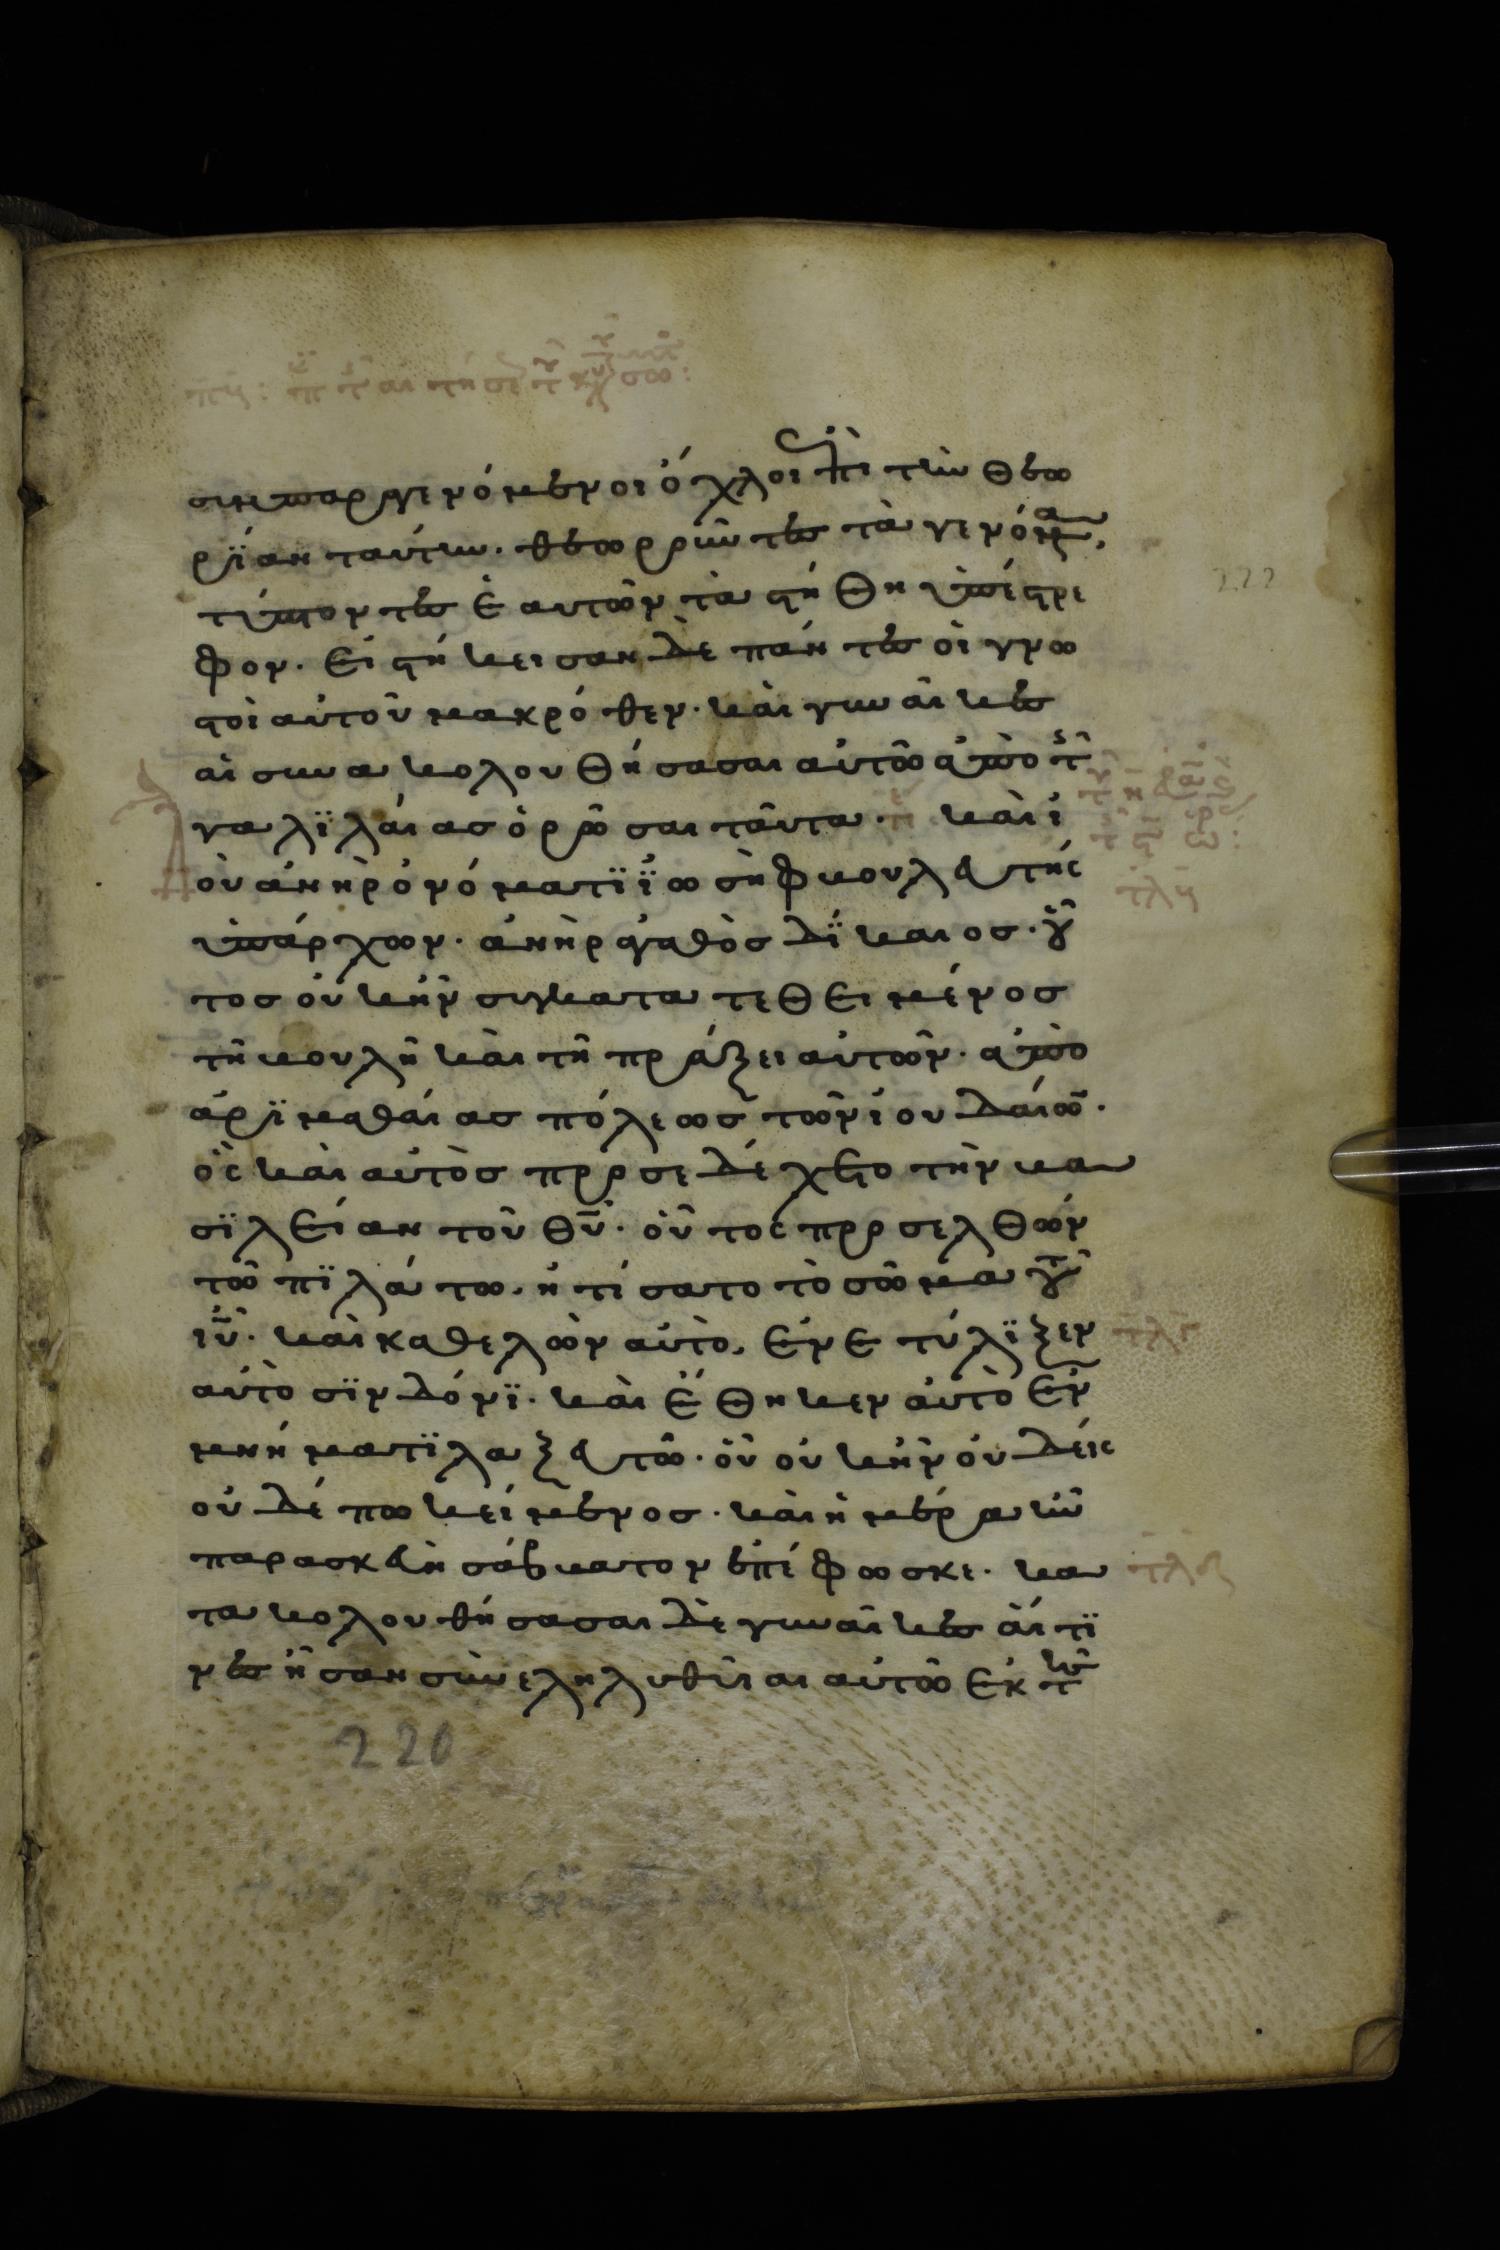 συμπαραγενόμενοι ὄχλοι ἐπὶ τὴν θεω
ρΐαν ταύτην. θεωροῦντες τὰ γενόμενα,
τύπτοντες ἑαυτῶν τὰ στήθη ὑπέστρε
φον. εἱστήκεισαν δὲ πάντες οἱ γνω
στοὶ αὐτοῦ μακρόθεν. καὶ γυναῖκες
αἱ συνακολουθήσασαι αὐτῶ ἀπὸ τῆς
γαλϊλαίας ὁρῶσαι ταῦτα. καὶ ἰ
δοὺ ἀνὴρ ὀνόματϊ ϊωσὴφ βουλευτὴς
ὑπάρχων. ἀνὴρ ἀγαθὸς δΐκαιος. οὗ
τος οὐκ ἦν συγκατατεθειμένος
τῆ βουλῆ καὶ τῆ πράξει αὐτῶν. ἀπὸ
ἀρϊμαθαίας πόλεως τῶν ἰουδαίων.
ὃς καὶ αὐτὸς προσεδέχετο τὴν βα
σϊλείαν τοῦ θυ. οὗτος προσελθὼν
τῶ πϊλάτω, ἠτίσατο τὸ σῶμα τοῦ
ιυ. καὶ καθελὼν αὐτὸ, ἐνετύλϊξεν
αὐτὸ σϊνδόνϊ. καὶ ἔθηκεν αὐτὸ ἐν
μνήματϊ λαξευτῶ. οὗ οὐκ ἦν οὐδεὶς
οὐδέπω κείμενος. καὶ ἡμέρα ἦν
παρασκευὴ σάββατον ἐπέφωσκε. κα
τακολουθήσασαι δὲ γυναῖκες αἵτϊ
νες ἦσαν συνεληλυθῖαι αὐτῶ ἐκ τῆς
220
222